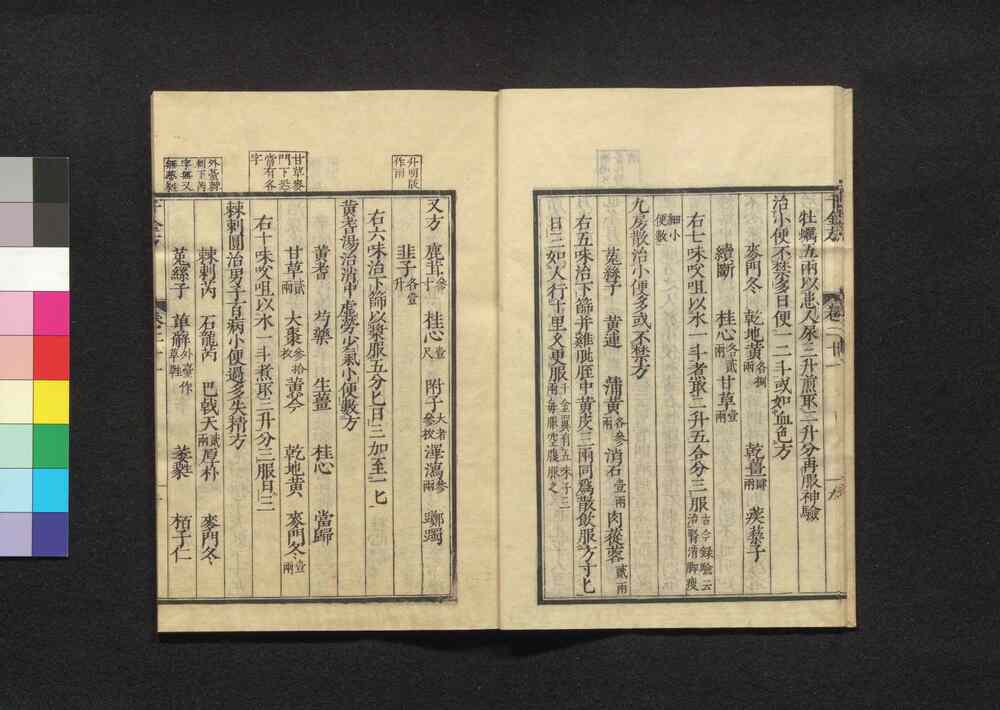 千金方
卷二十一
牡蠣五兩以患人尿三升煎取二升分再服神驗
治小便不禁多日便一二斗或如血色方
麥門冬 乾地黃各捌兩 乾薑肆兩 蒺藜子
續斷 桂心各貳兩 甘草壹兩
右七味㕮咀以水一斗煮取二升五合分三服古今錄驗云治腎消脚瘦細小便數
九房散治小便多或不禁方
菟絲子 黃連 蒲黃各參兩 消石壹兩 肉蓯蓉貳兩
右五味治下篩并雞䏶胵中黃皮三兩同爲散飲服方寸匕
日三如人行十里久更服千金翼有五味子三兩每服空腹服之
又方 鹿茸參寸 桂心壹尺 附子大者參枚 澤瀉參兩 躑躅
韭子各壹升
右六味治下篩以漿服五分匕日三加至一匕
黃耆湯治消中虛勞少氣小便數方
黃耆 芍藥 生薑 桂心 當歸
甘草貳兩 大棗參拾枚 黃芩 乾地黃 麥門冬壹兩
右十味㕮咀以水一斗煮取三升分三服日三
棘刺圓治男子百病小便過多失精方
棘刺 石龍芮 巴戟天貳兩 厚朴 麥門冬
菟絲子 萆薢外臺作草鞋 萎蕤 栢子仁
升明版作兩
甘草麥門下恐當有各字